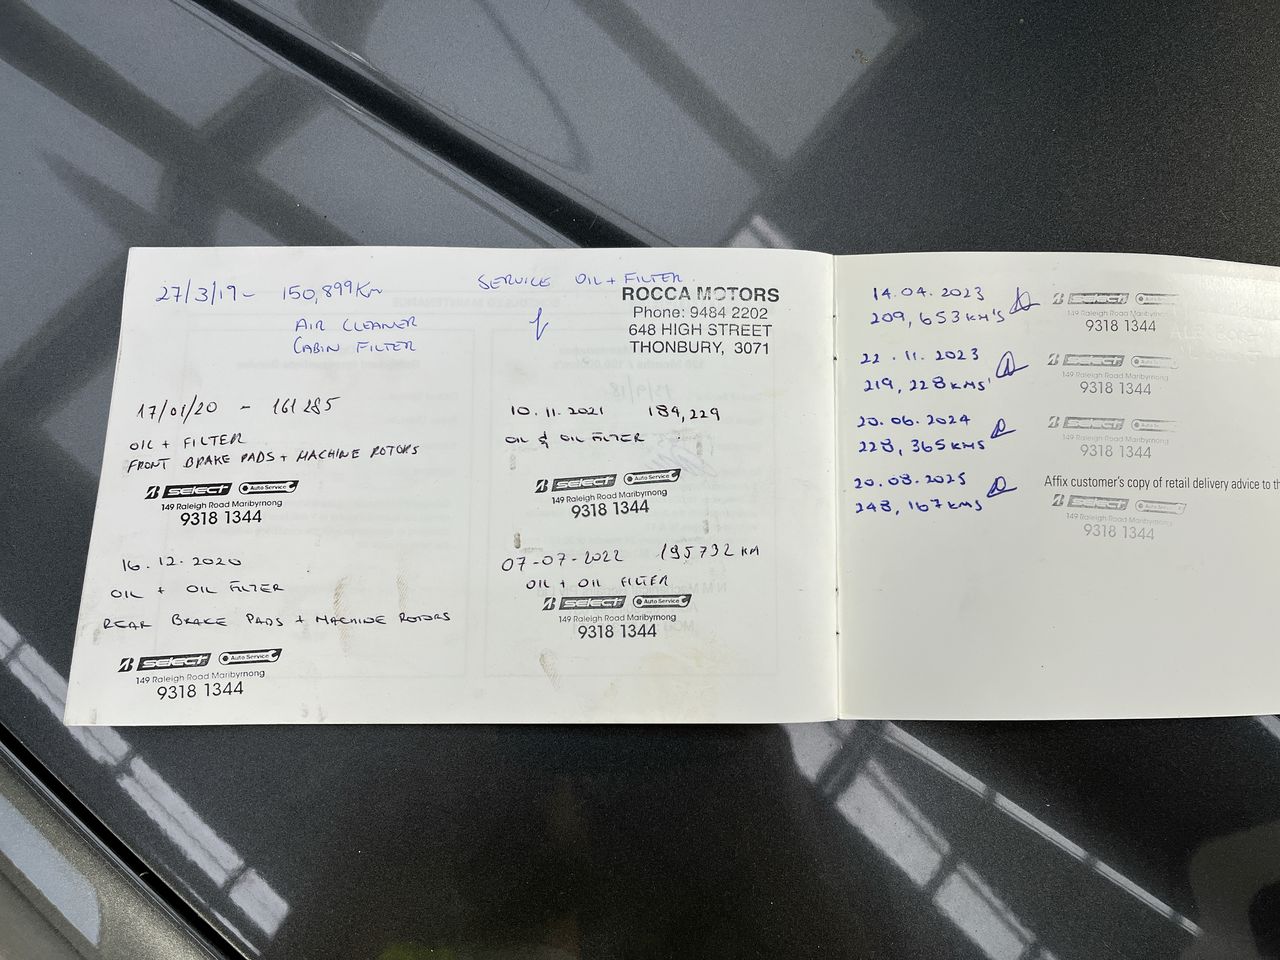 27/3/19- 150,899Km SERVICE OIL + FILTER.
AIR CLEANER
CABIN FILTER
ROCCA MOTORS
Phone: 9484 2202
648 HIGH STREET
THONBURY, 3071
17/01/20 - 161285
OIL + FILTER
FRONT BRAKE PADS + MACHINE ROTORS
select Auto Service
149 Raleigh Road Maribyrnong
9318 1344
16.12.2020
OIL + OIL FILTER
REAR BRAKE PADS + MACHINE ROTORS
select Auto Service
149 Raleigh Road Maribyrnong
9318 1344
10.11.2021 184,229
OIL & OIL FILTER
select Auto Service
149 Raleigh Road Maribyrnong
9318 1344
07-07-2022 195732 KM
OIL + OIL FILTER
select Auto Service
149 Raleigh Road Maribyrnong
9318 1344
14.04.2023
209,653KM'S
select Auto
149 Raleigh Road Maribyrnong
9318 1344
22.11.2023
219,228KMS'
select Auto
149 Raleigh Road Maribyrnong
9318 1344
20.06.2024
228,365KMS
select Auto
149 Raleigh Road Maribyrnong
9318 1344
20.08.2025
248,167KMS
Affix customer's copy of retail delivery advice to th
select Auto
149 Raleigh Road Maribyrnong
9318 1344